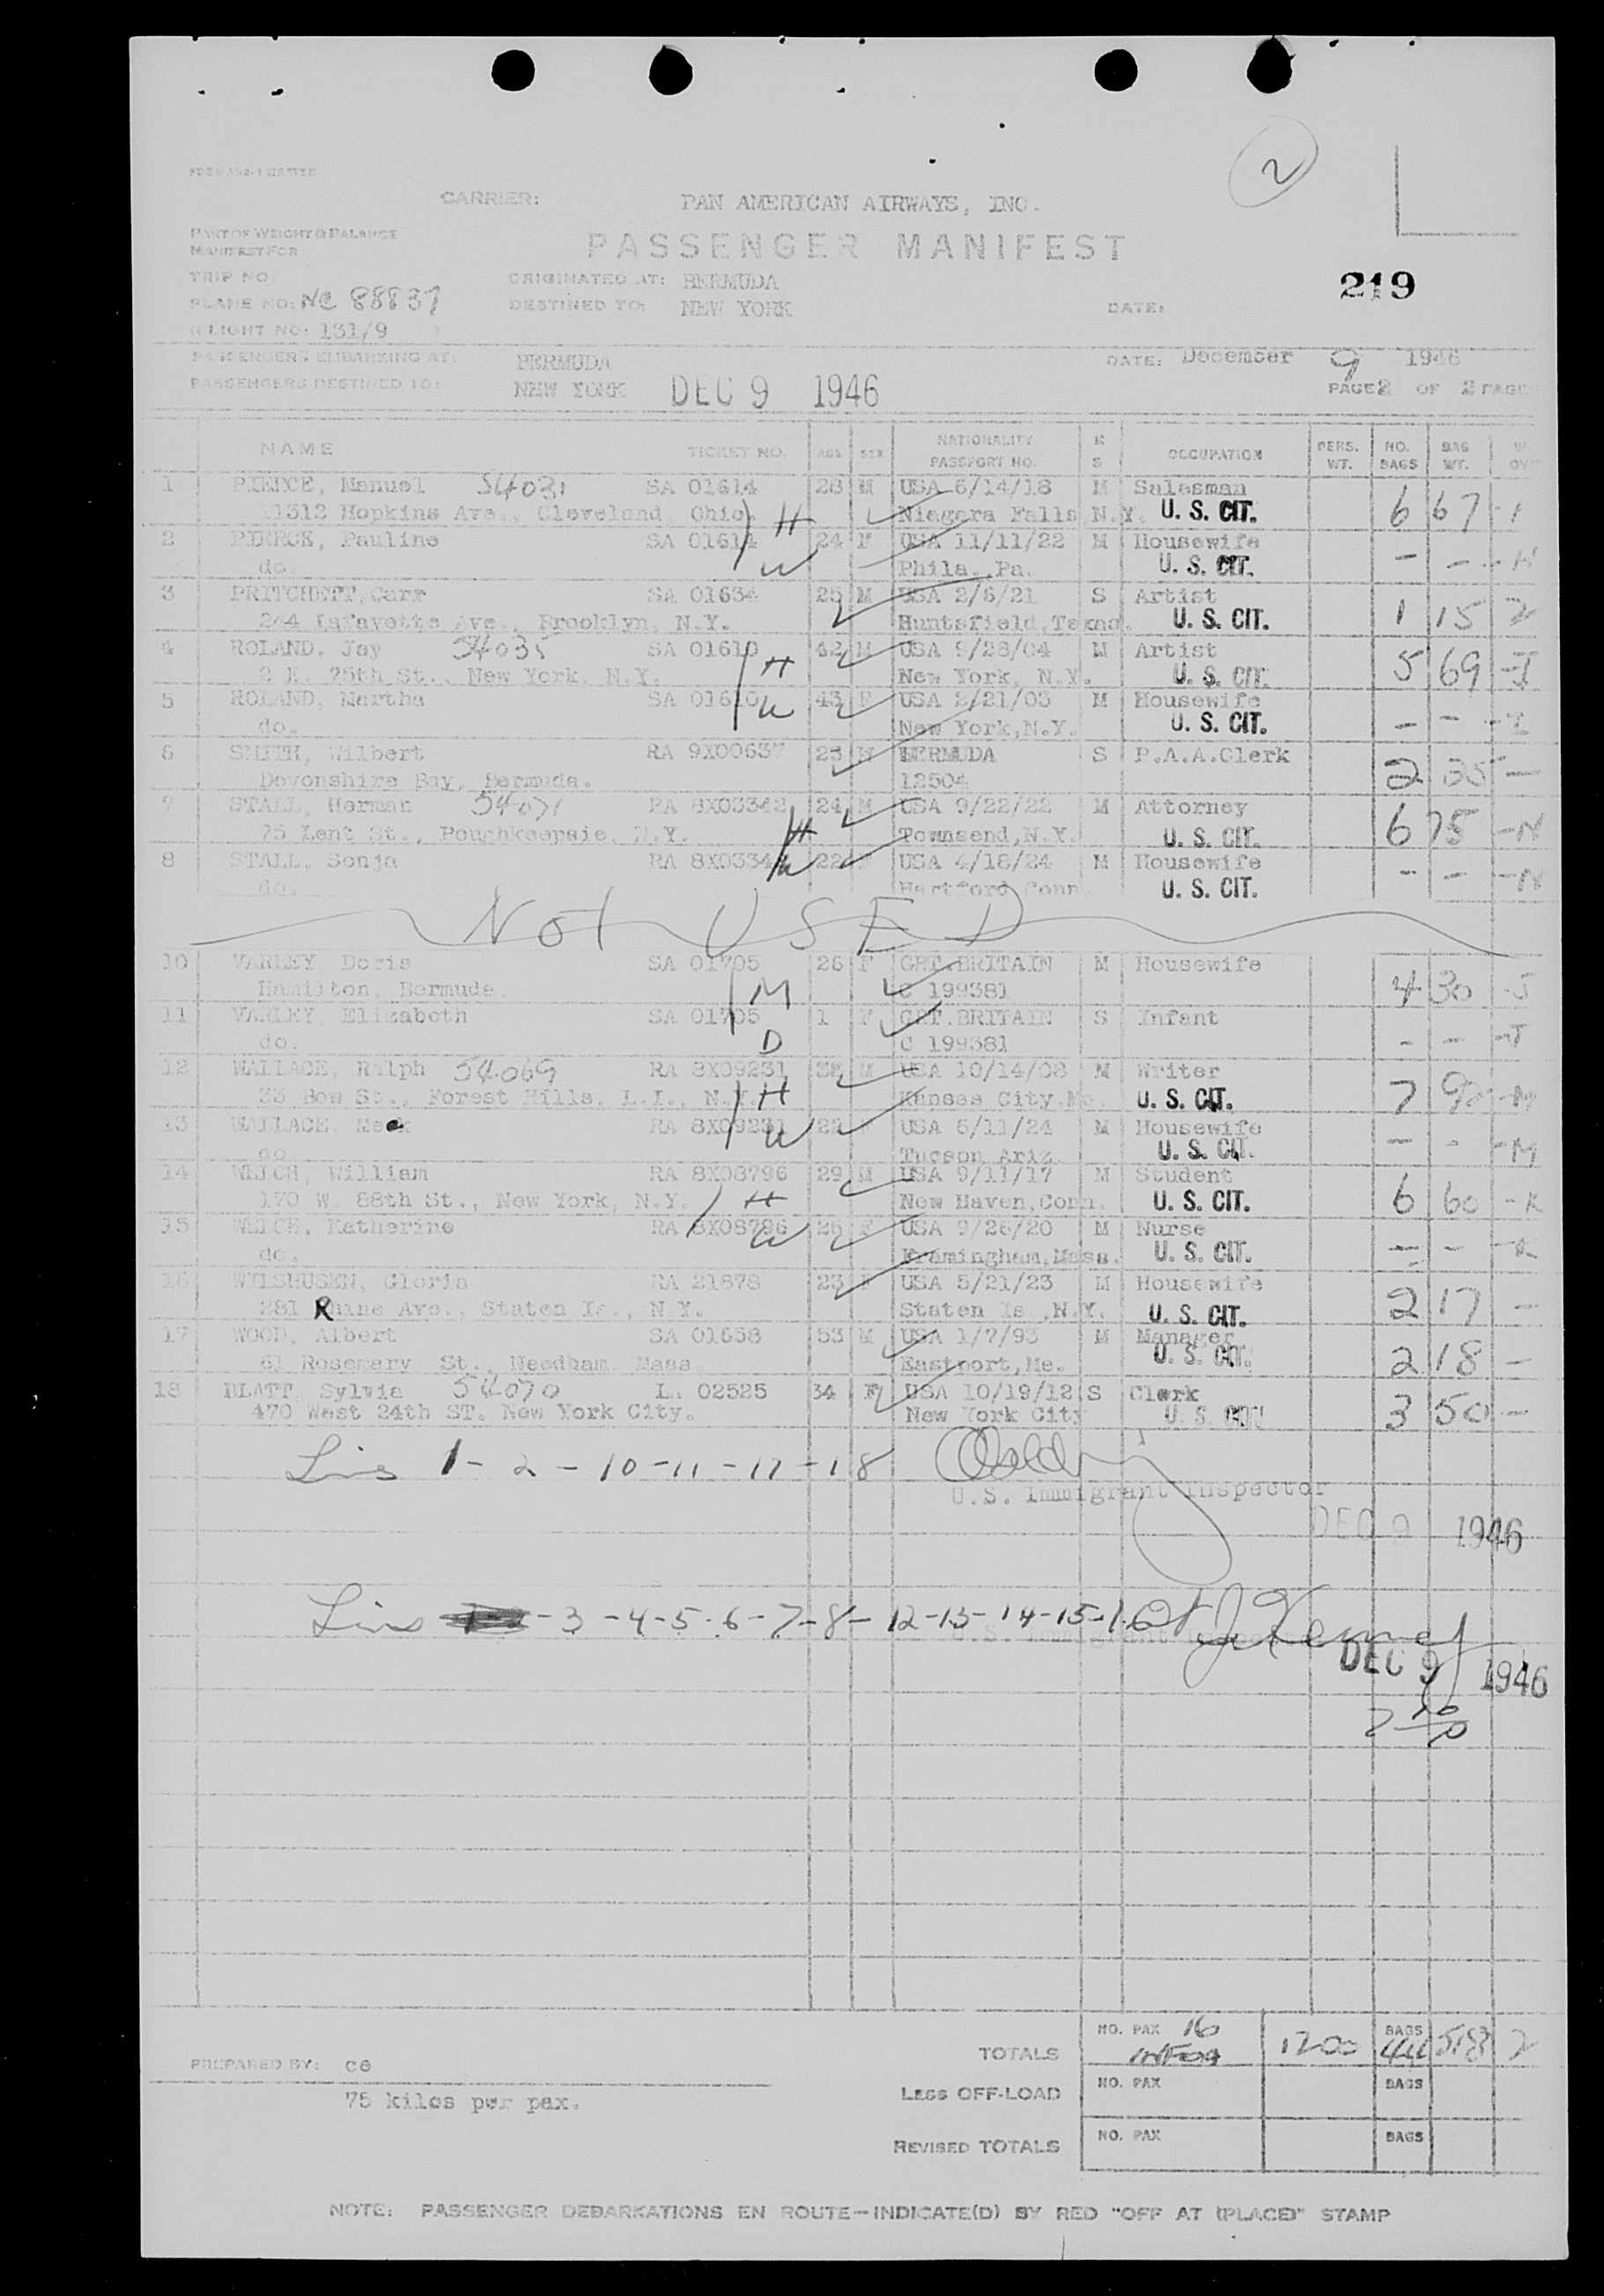 2
CARRIER: PAN AMERICAN AIRWAYS, INC.
PART OF WEIGHT & BALANCE
MANIFEST FOR
PASSENGER MANIFEST
219
TRIP NO.
ORIGINATED AT: BERMUDA
PLANE NO: NC 88837
DESTINED TO: NEW YORK
DATE:
FLIGHT NO: 131/9
PASSENGERS EMBARKING AT: BERMUDA
DATE: December 9 1946
PASSENGERS DESTINED TO: NEW YORK DEC 9 1946
PAGE 2 OF 2 PAGES
NAME TICKET NO. AGE SEX NATIONALITY PASSPORT NO. M S OCCUPATION PERS. WT. NO. BAGS BAG WT.
1 PIERCE, Manuel 54031 SA 01614 28 M USA 6/14/18 M Salesman 6 67 -1
1312 Hopkins Ave., Cleveland Ohio. H Niagara Falls N.Y. U. S. CIT.
2 PIERCE, Pauline SA 01614 24 F USA 11/11/22 M Housewife - - -
do. W Phila. Pa. U. S. CIT.
3 PRITCHETT, Carr SA 01634 25 M USA 2/6/21 S Artist 1 15 2
244 Lafayette Ave., Brooklyn, N.Y. Huntsfield, Texas. U. S. CIT.
4 ROLAND, Jay 54035 SA 01610 42 M USA 9/28/04 M Artist 5 69 -I
2 E. 75th St., New York, N.Y. H New York, N.Y. U. S. CIT.
5 ROLAND, Martha SA 01610 43 F USA 2/21/03 M Housewife - - -I
do. W New York, N.Y. U. S. CIT.
6 SMITH, Wilbert RA 9X00637 23 M BERMUDA S P.A.A.Clerk 2 25 -
Devonshire Bay, Bermuda. 12504
7 STALL, Herman 54071 RA 8X03342 24 M USA 9/22/22 M Attorney 6 75 -N
75 Lent St., Poughkeepsie, N.Y. H Townsend, N.Y. U. S. CIT.
8 STALL, Sonja RA 8X03342 22 F USA 4/18/24 M Housewife - - -N
do. W Hartford, Conn. U. S. CIT.
Not USED
10 VARLEY, Doris SA 01705 26 F GRT.BRITAIN M Housewife 4 30 -J
Hamilton, Bermuda. M C 199381
11 VARLEY, Elizabeth SA 01705 1 F GRT.BRITAIN S Infant - - -J
do. D C 199381
12 WALLACE, Ralph 54069 RA 8X09231 38 M USA 10/14/08 M Writer 7 90 -M
33 Bow St., Forest Hills, L.I., N.Y. H Kansas City Mo. U. S. CIT.
13 WALLACE, RA 8X09231 22 F USA 6/11/24 M Housewife - - -M
do. W Tucson Ariz. U. S. CIT.
14 WELCH, William RA 8X08796 29 M USA 9/11/17 M Student 6 60 -K
170 W. 88th St., New York, N.Y. H New Haven, Conn. U. S. CIT.
15 WELCH, Katherine RA 8X08796 26 F USA 9/26/20 M Nurse - - -K
do. W Framingham, Mass. U. S. CIT.
16 WELSHUSEN, Gloria RA 21878 23 F USA 5/21/23 M Housewife 2 17 -
281 Rhine Ave., Staten Is., N.Y. Staten Is., N.Y. U. S. CIT.
17 WOOD, Albert SA 01638 53 M USA 1/7/93 M Manager 2 18 -
61 Rosemary St., Needham Mass. Eastport, Me. U. S. CIT.
18 BLATT Sylvia 54070 L. 02525 34 F USA 10/19/12 S Clerk 3 50 -
470 West 24th ST. New York City. New York City U. S. CIT.
Lins 1 - 2 - 10 - 11 - 17 - 18
U.S. Immigrant Inspector
DEC 9 1946
Lins - 3 - 4 - 5 - 6 - 7 - 8 - 12 - 13 - 14 - 15 - 16
U.S. Immigrant Inspector
DEC 9 1946
TOTALS NO. PAX 16 1200 BAGS 44 518 2
PREPARED BY: ce
LESS OFF-LOAD NO. PAX BAGS
75 kilos per pax.
REVISED TOTALS NO. PAX BAGS
NOTE: PASSENGER DEBARKATIONS EN ROUTE—INDICATE(D) BY RED "OFF AT (PLACE)" STAMP